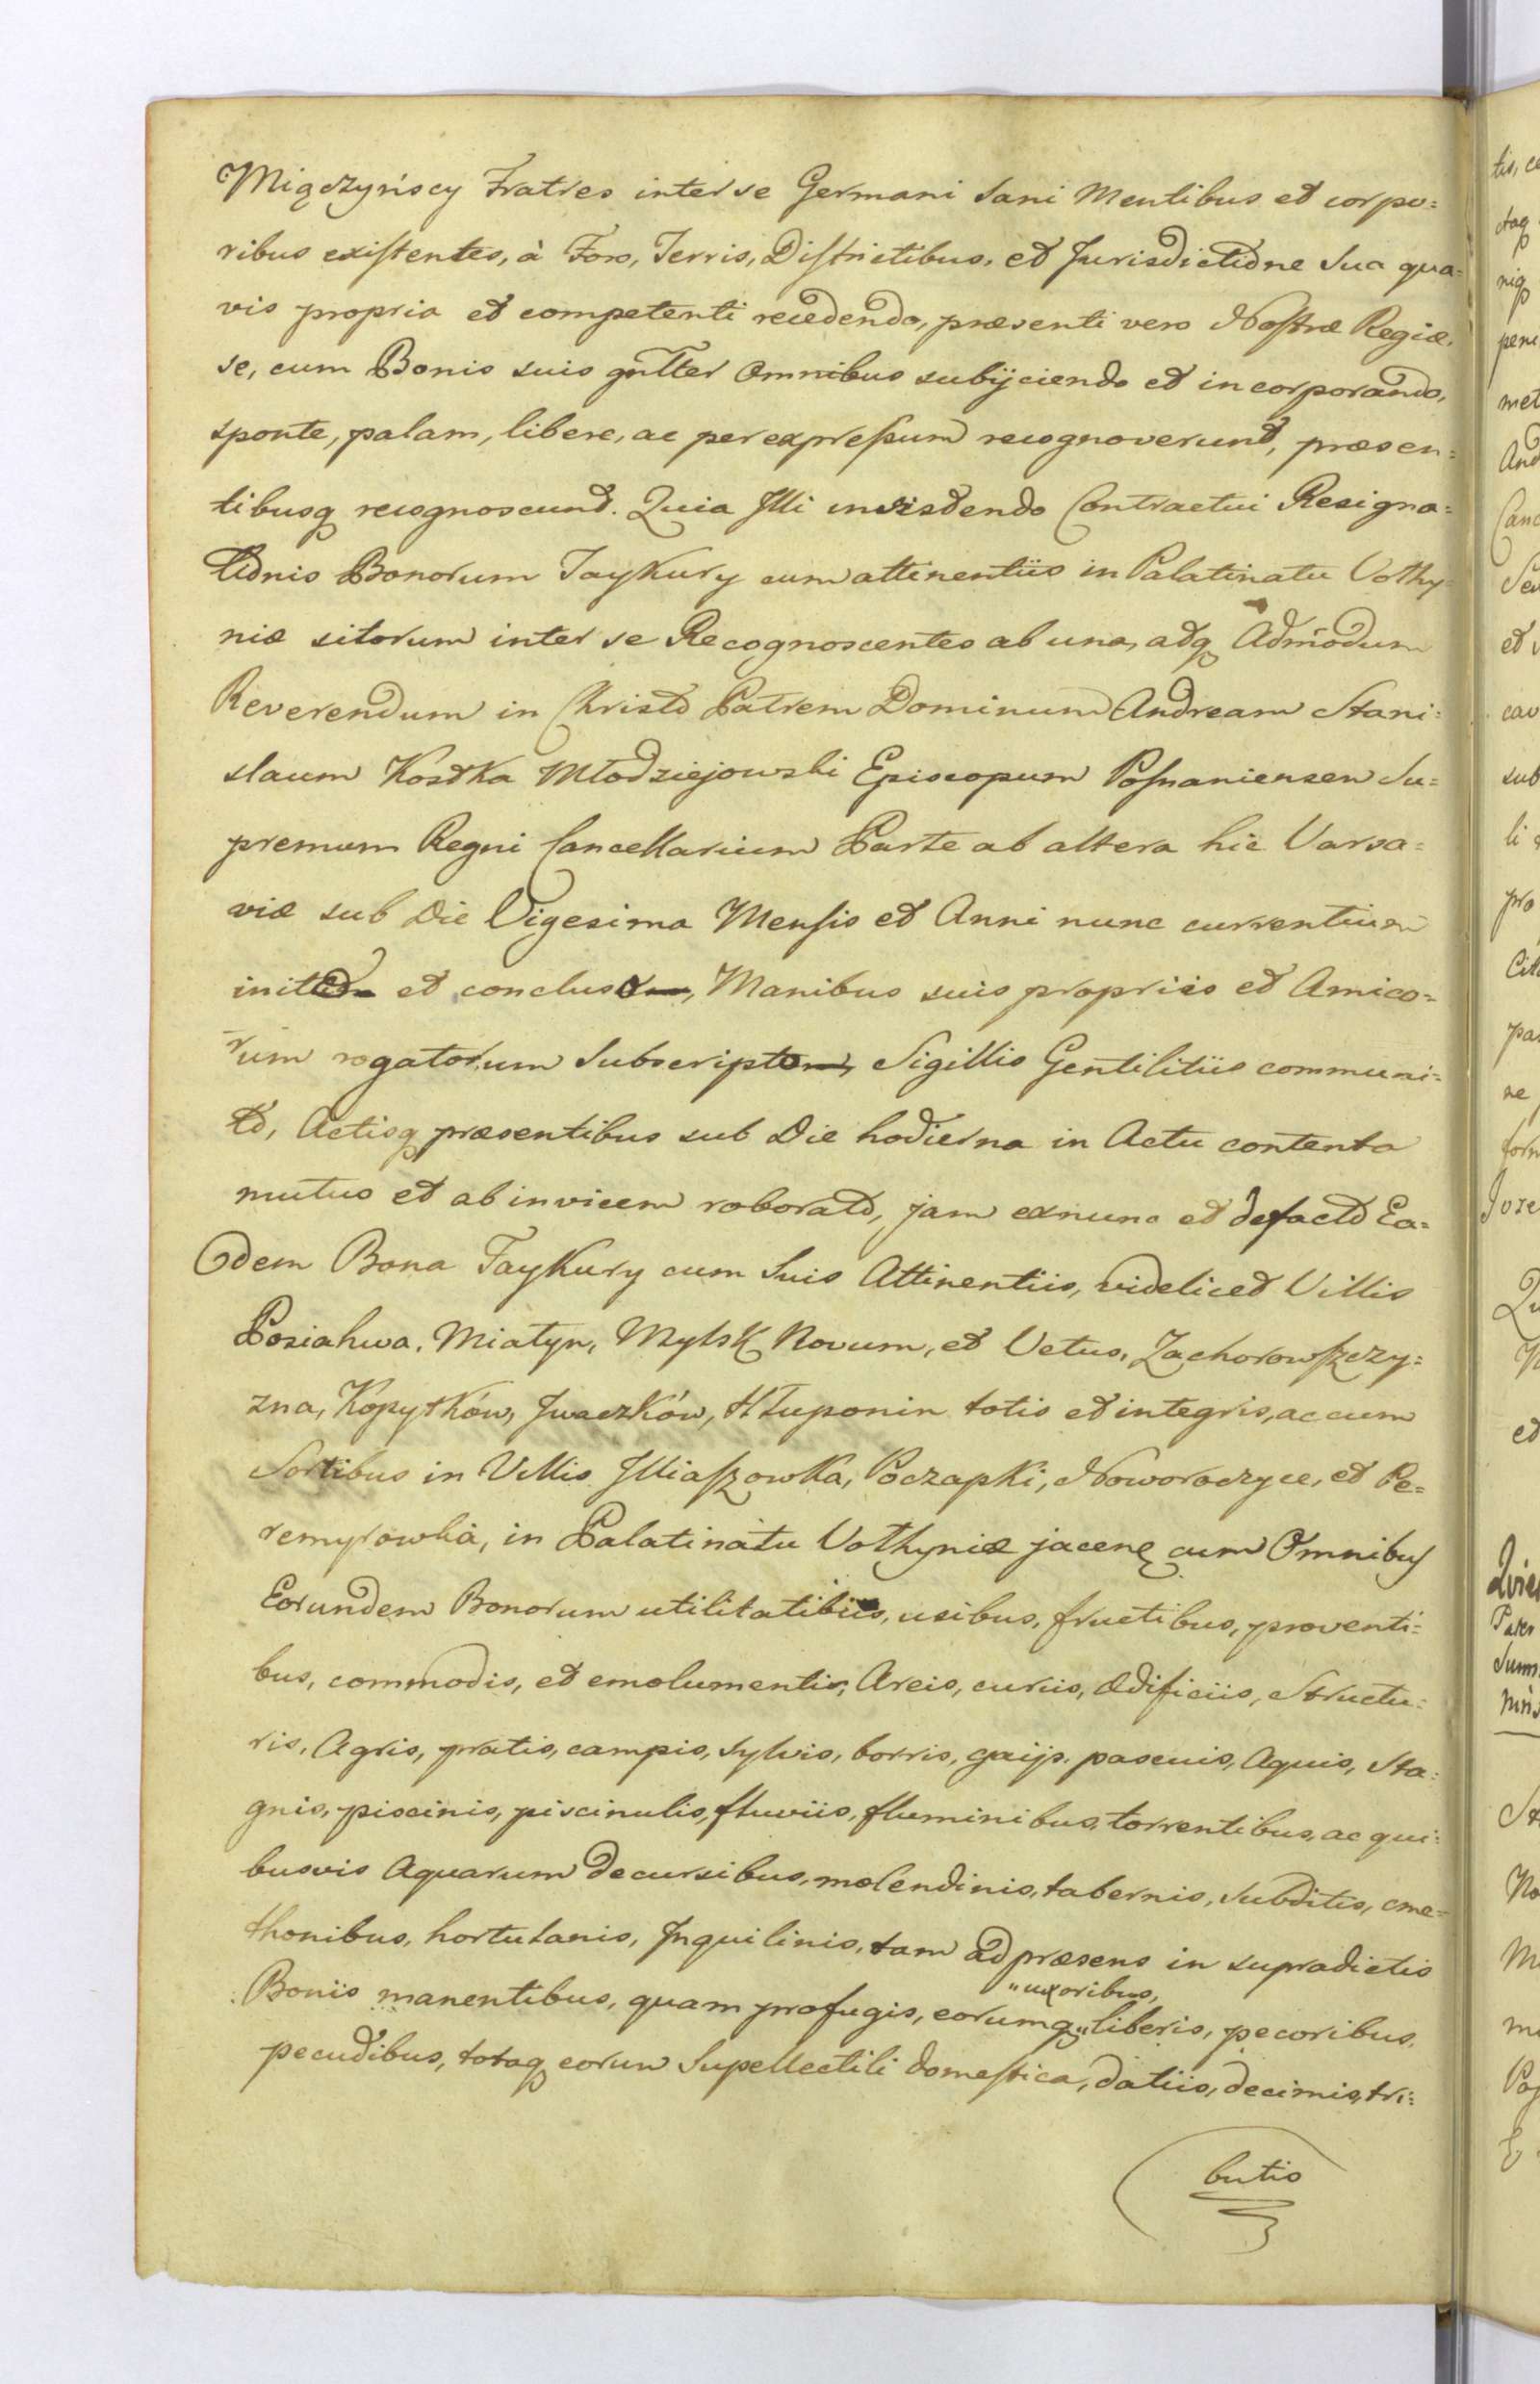 Miączyńscy Fratres inter se Germani Sani Mentibus et corpo=
ribus existentes, à Foro, Terris, Districtibus, et Jurisdictione Sua qua=
vis propria et competenti recedendo, præsenti vero Nostræ Regiæ,
se, cum Bonis suis gnltter Omnibus subijciendo et incorporando,
sponte, palam, libere, ac per expressum recognoverunt, præsen=
tibusq recognoscunt. Quia Illi insistendo Contractui Resigna=
tionis Bonorum Taykury cum attinentiis in Palatinatu Volhy=
niæ sitorum inter se Recognoscentes ab una, adq Admodum
Reverendum in Christo Patrem Dominum Andream Stani=
slaum Kostka Młodziejowski Episcopum Posnaniensem Su=
premum Regni Cancellarium Parte ab altera hic Varsa=
viæ sub Die Vigesima Mensis et Anni nunc currentium
inito et concluso, Manibus suis propriis et Amico=
rum rogatorum Subscripto, Sigillis Gentilitiis communi=
to, Actisq præsentibus sub Die hodierna in Actu contento
mutuo et ab invicem roborato, jam exnunc et defacto Ea=
dem Bona Taykury cum Suis Attinentiis, videlicet Villis
Posiahwa, Miatyn, Mylsk Novum, et Vetus, Zachorowszczy=
zna, Kopytków, Iwaczków, Hłuponin totis et integris, ac cum
Sortibus in Villis Illiaszowka, Poczapki, Noworoczyce, et Pe=
remyrowka, in Palatinatu Volhyniæ jacen cum Omnibus
Eorundem Bonorum utilitatibus, usibus, fructibus, proventi=
bus, commodis, et emolumentis, Areis, curiis, ædificiis, Structu=
ris, Agris, pratis, campis, sylvis, borris, gaijs, pascuis, Aquis, Sta=
gnis, piscinis, piscinulis, fluviis, fluminibus, torrentibus, ac qui=
busvis Aquarum decursibus, molendinis, tabernis, Subditis, cme=
thonibus, hortulanis, Inquilinis, tam ad præsens in supradictis
"uxoribus,
Bonis manentibus, quam profugis, eorumq" liberis, pecoribus,
pecudibus, totaq eorum Supellectili domestica, datiis, decimis, tri=
butis